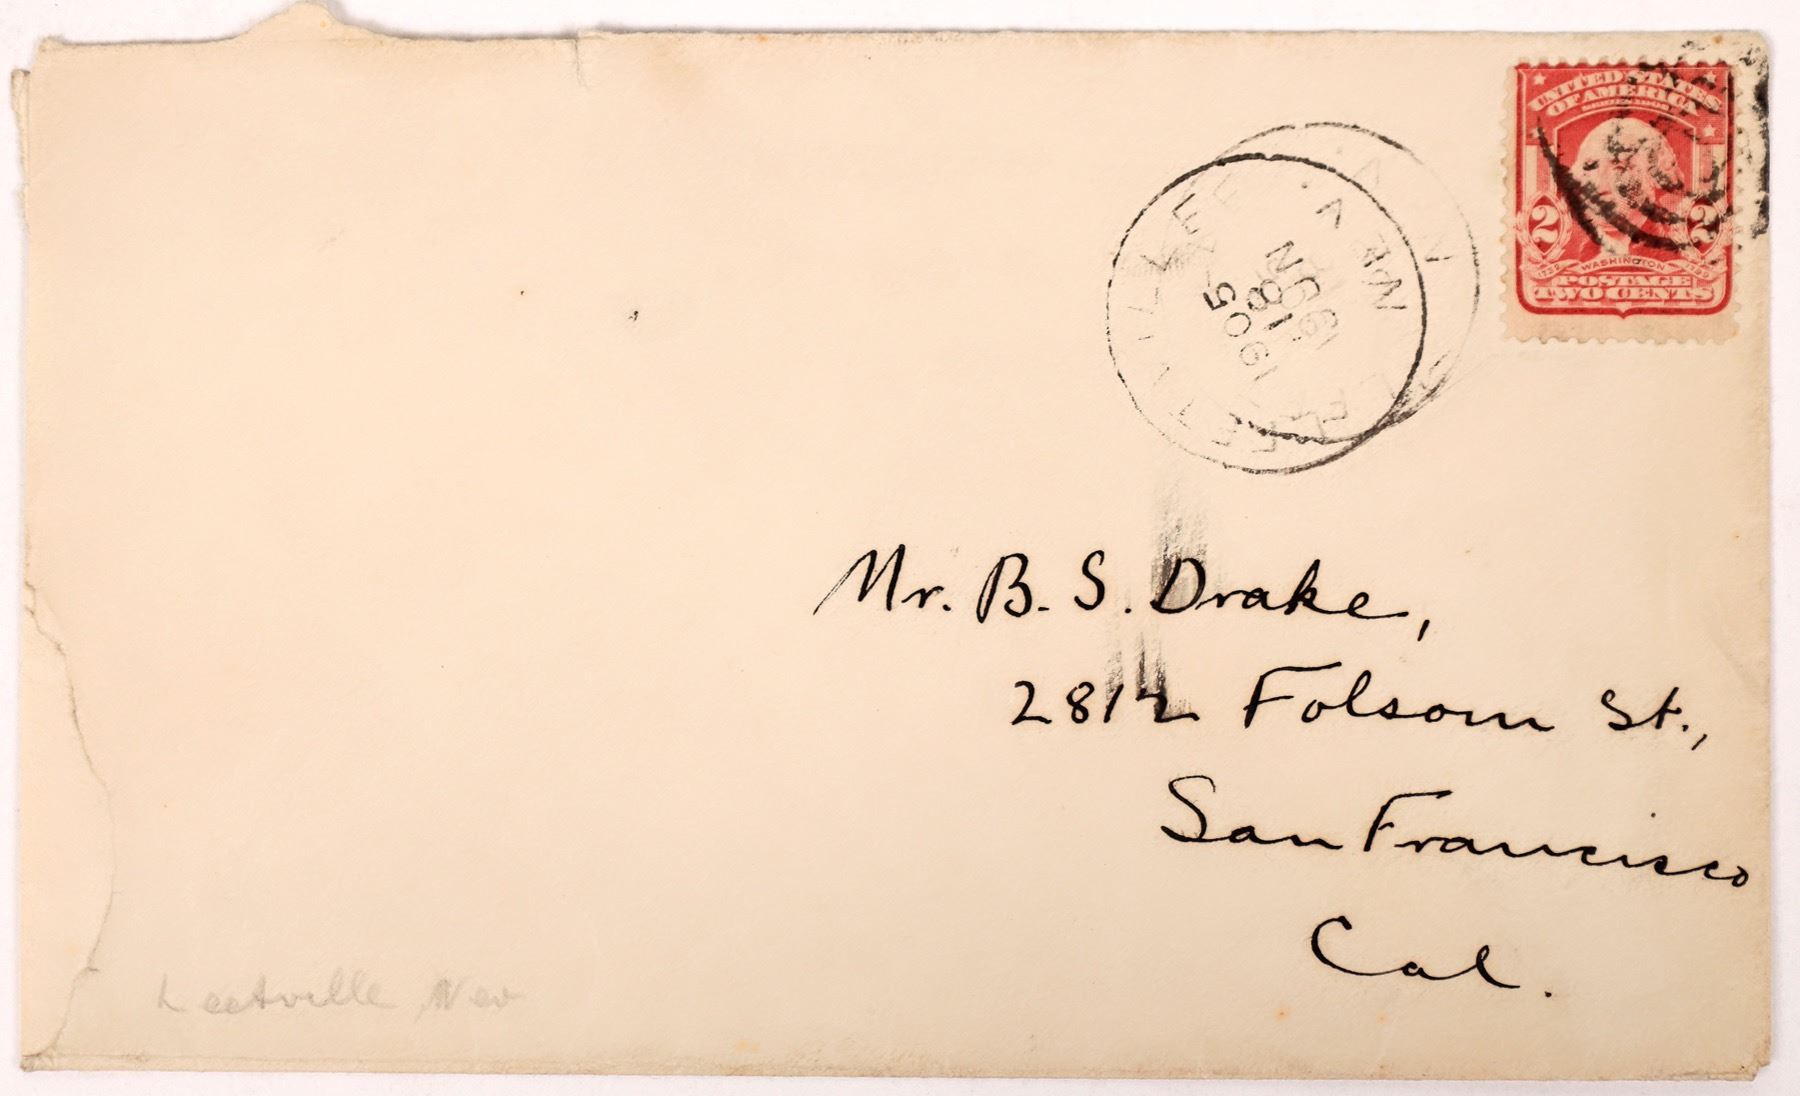 UNITED STATES
OF AMERICA
SERIES 1902
2 2
1732 WASHINGTON 1799
POSTAGE
TWO CENTS
LEETVILLE
NEV.
JUN
18
1905
Mr. B. S. Drake,
2812 Folsom St.,
San Francisco
Cal.
Leetville, Nev